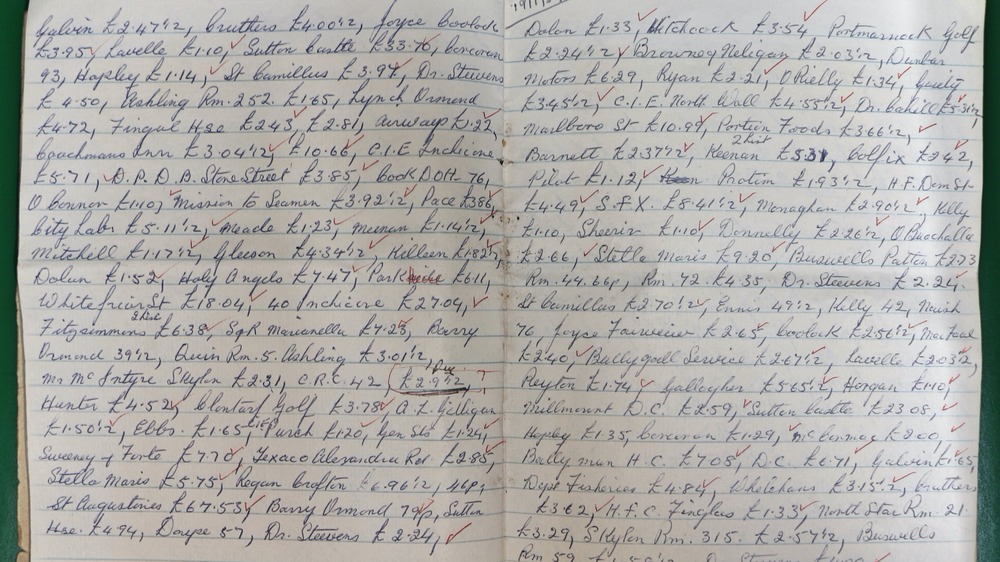 Galvin £2.47½, Cruthers £4.00½, Joyce Coolock
£3.95, Lavelle £1.10, Sutton Castle £33.70, Corcoran
93, Hopley £1.14, St Camillus £3.97, Dr. Steevens
£4.50, Ashling Rm. 252. £1.65, Lynch Ormond
£4.72, Fingal Hse £2.43, £2.81, Airways £1.22,
Coachmans Inn £3.04½, £10.66, C.I.E Inchicore
£5.71, D.P.D.B. Stone Street £3.85, Cook DOH. 76,
O Connor £1.10, Mission to Seamen £3.92½, Pace £3.86,
City Labs £5.11½, Meade £1.23, Meenan £1.14½,
Mitchell £1.17½, Gleeson £4.34½, Killeen £1.82½,
Dolan £1.52, Holy Angels £7.47, Park £6.11,
Whitefriar St £18.04, 40 Inchicore £27.04,
Fitzsimmons £6.38, S&R Marianella £7.23, Barry
Ormond 39½, Quin Rm. 5. Ashling £3.01½,
Mr McIntyre Skylon £2.31, C.R.C. 42 £2.9½
Hunter £4.52, Clontarf Golf £3.78, A.E. Gilligan
£1.50½, Ebbs. £1.65, Purch £1.20, Gen Sts £1.24,
Sweeney & Forte £7.70, Texaco Alexandra Rd £2.85,
Stella Maris £5.75, Regan Crofton £6.96½, 46p,
St Augustines £67.53, Barry Ormond 79p, Sutton
Hse. £4.94, Doupe 57, Dr. Steevens £2.24,
Dolan £1.33, Hitchcock £3.54, Portmarnock Golf
£2.24½, Browney Neligan £2.03½, Dunbar
Motors £6.29, Ryan £2.21, O Rielly £1.34, Quilty
£3.45½, C.I.E. North Wall £4.55½, Dr. Cahill £5.31½,
Marlboro St £10.99, Portion Foods £3.66½,
Barnett £2.37½, Keenan £5.31, Colfix £2.42,
Pilot £1.12, Protim £1.93½, H.F. Dom St.
£4.49, S.F.X. £8.41½, Monaghan £2.90½, Kelly
£1.10, Sheerin £1.10, Donnelly £2.26½, O Buachalla
£2.66, Stella Maris £9.20, Buswells Patton £2.73
Rm. 44. 66p, Rm. 72. £4.35, Dr. Steevens £2.24,
St Camillus £2.70½, Ennis 49½, Kelly 42, Naish
76, Joyce Fairview £2.65, Coolock £2.56½,
£2.40, Ballygall Service £2.67½, Lavelle £2.03½
Peyton £1.74, Gallagher £5.65½, Horgan £1.10,
Millmount D.C. £2.59, Sutton Castle £23.08,
Hopley £1.35, Corcoran £1.29, McCormac £2.00,
Ballymun H.C. £7.08, D.C. £6.71, Galvin £1.65,
Dept Fisheries £4.84, Whelehans £3.15½, Cruthers
£3.62, H.F.C. Finglas £1.33, North Star Rm. 21
£3.29, Skylon Rm. 315. £2.57½, Buswells
Rm 59